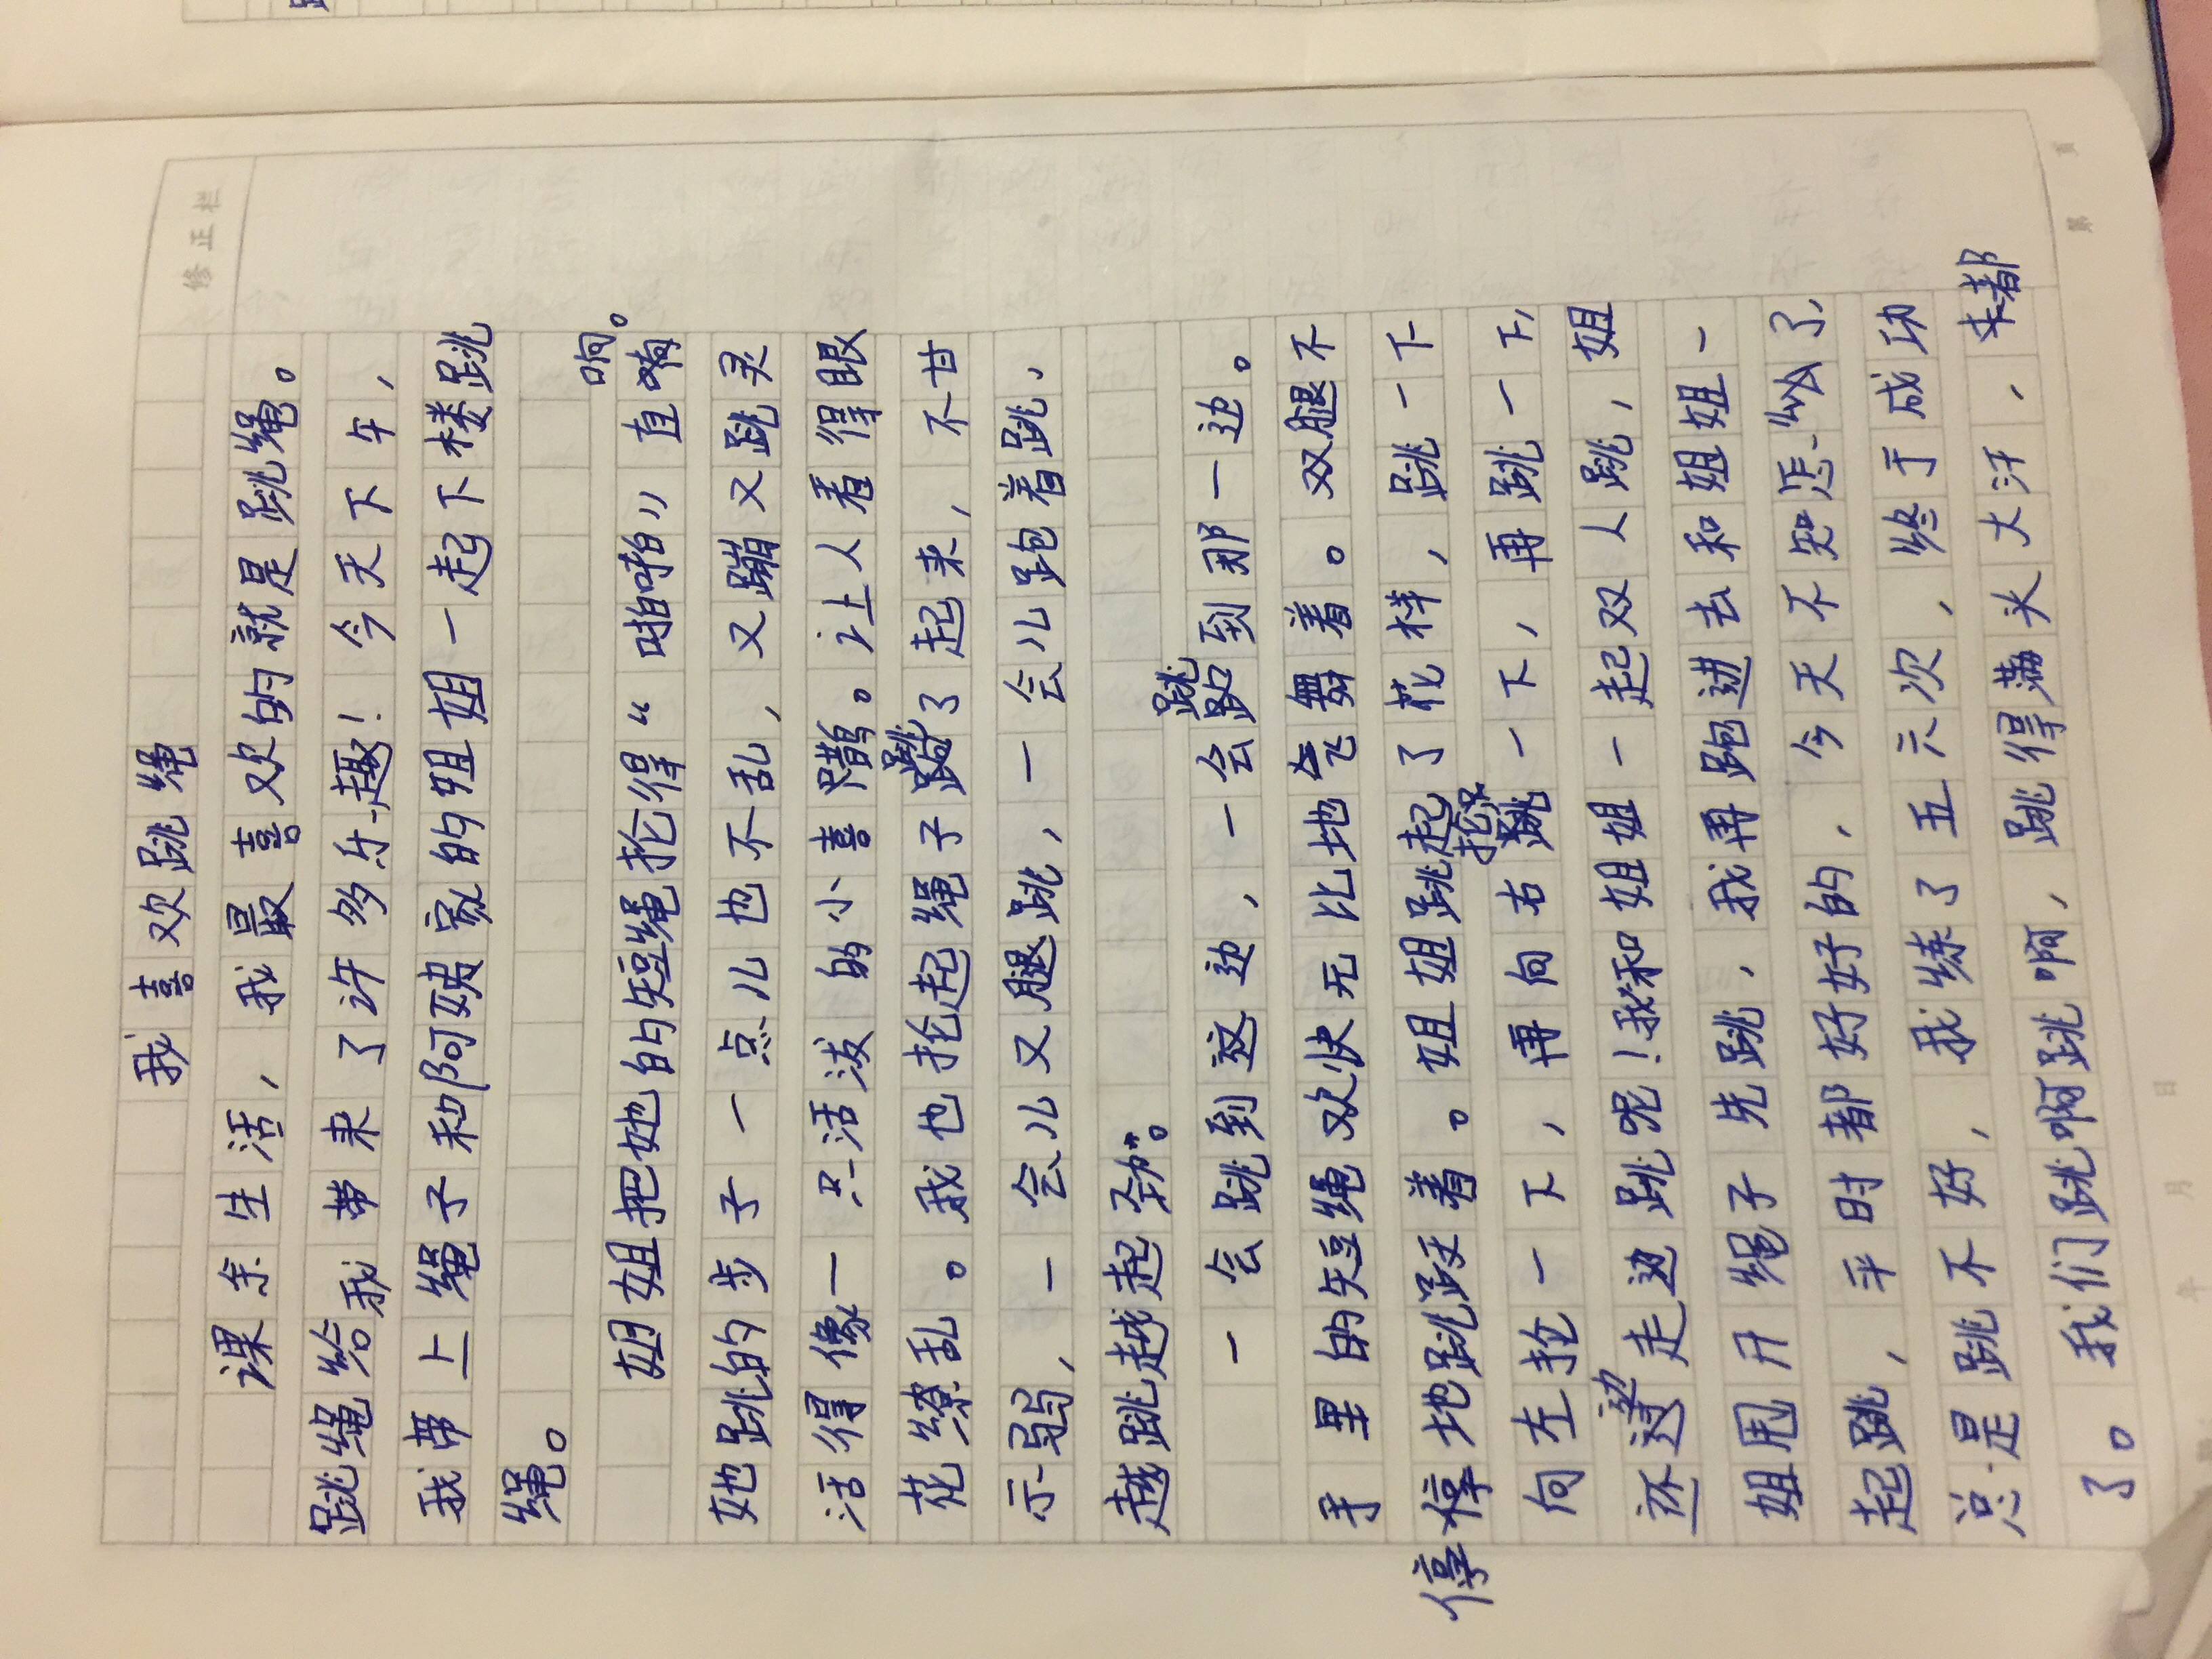 修正栏
我喜欢跳绳
课余生活，我最喜欢的就是跳绳。
跳绳给我带来了许多乐趣！今天下午，
我带上绳子和阿姨家的姐姐一起下楼跳
绳。
姐姐把她的短绳抡得“啪啪”直响。
她跳的步子一点儿也不乱，又蹦又跳灵
活得像一只活泼的小喜鹊。让人看得眼
花缭乱。我也抡起绳子跳了起来，不甘
示弱，一会儿又腿跳，一会儿跑着跳，
越跳越起劲。
一会跳到这边，一会跳到那一边。
手里的短绳欢快无比地飞舞着。双腿不
停地跳跃着。姐姐跳起了花样，跳一下
向左抡一下，再向右抡一下，再跳一下，
还边走边跳呢！我和姐姐一起双人跳，姐
姐甩开绳子先跳，我再跑进去和姐姐一
起跳，平时都好好的，今天不知怎么了，
总是跳不好，我练了五六次，终于成功
了。我们跳啊跳啊，跳得满头大汗，来都
第 页
年 月 日